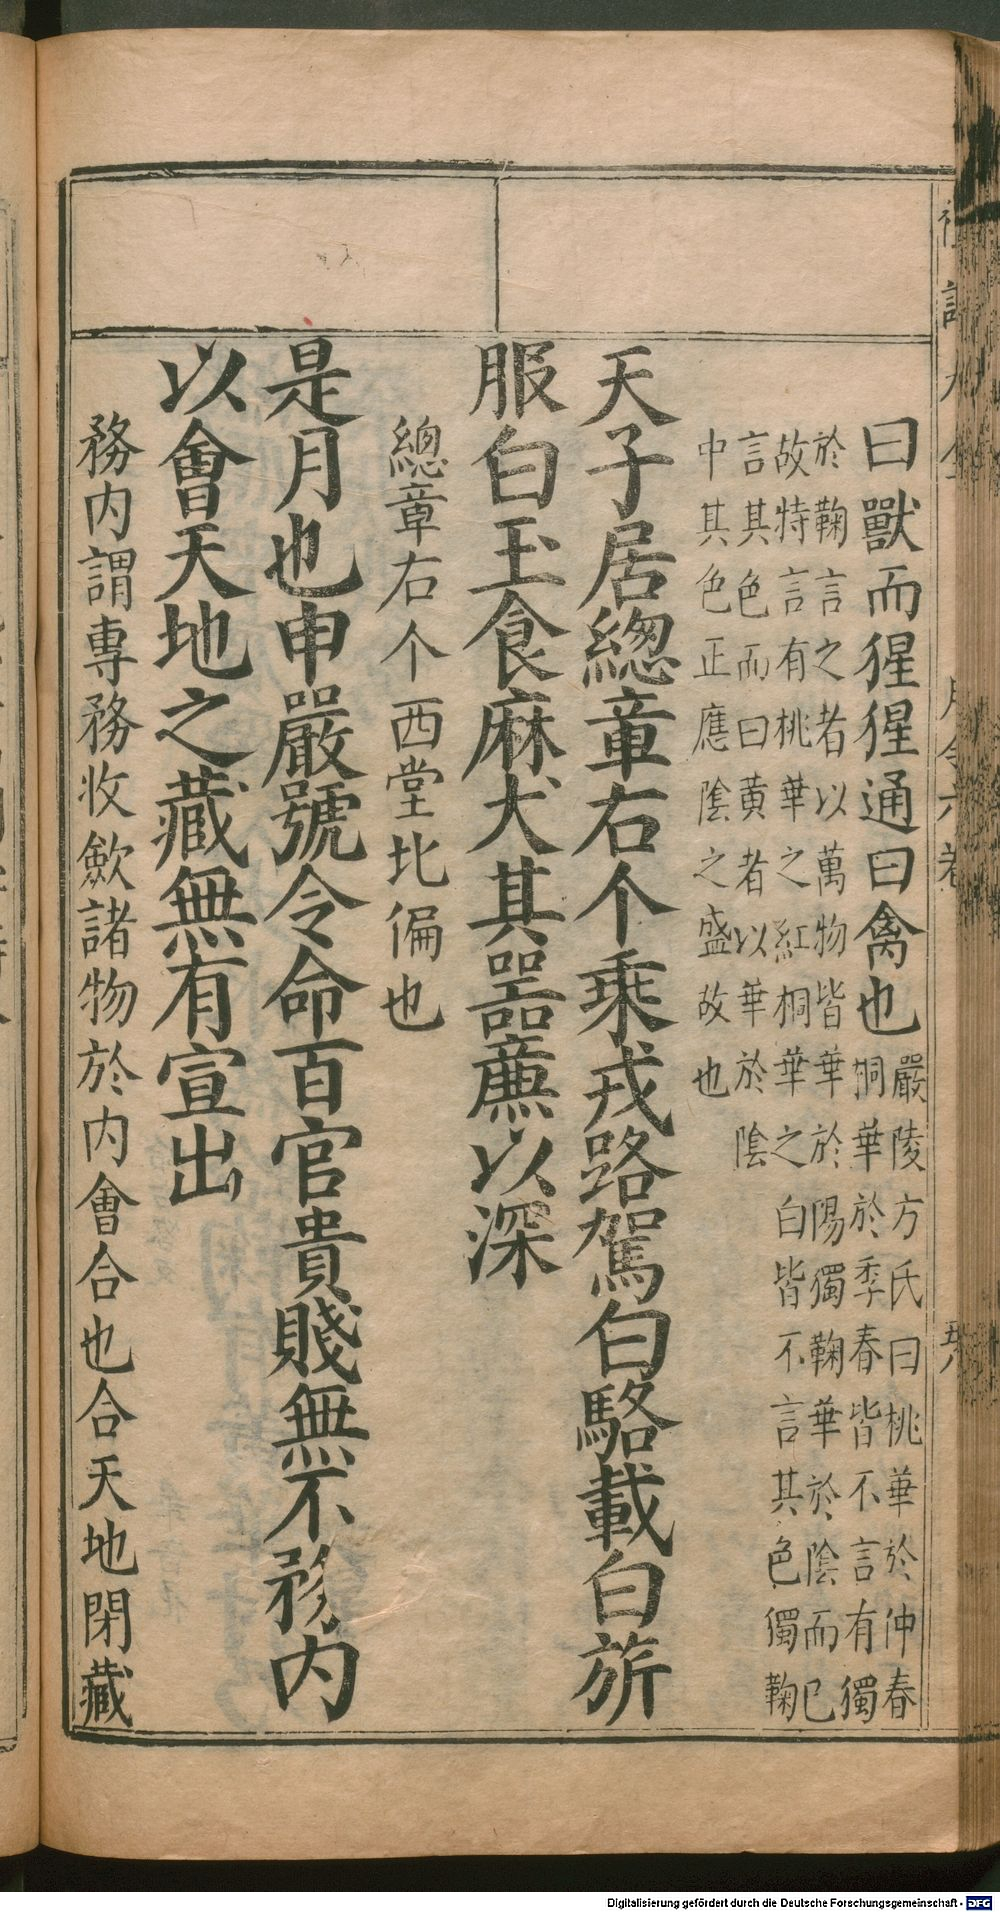 曰獸而猩猩通曰禽也嚴陵方氏曰桃華於仲春
桐華於季春皆不言有獨
於鞠言之者以萬物皆華於陽獨鞠華於陰而已
故特言有桃華之紅桐華之白皆不言其色獨鞠
言其色而曰黄者以華於陰
中其色正應陰之盛故也
天子居緫章右个乘戎路駕白駱載白旂
服白玉食麻犬其器亷以深
總章右个西堂北偏也
是月也申嚴號令命百官貴賤無不務内
以會天地之藏無有宣出
務内謂專務收斂諸物於内會合也合天地閉藏
月令六卷
五八
Digitalisierung gefördert durch die Deutsche Forschungsgemeinschaft - DFG